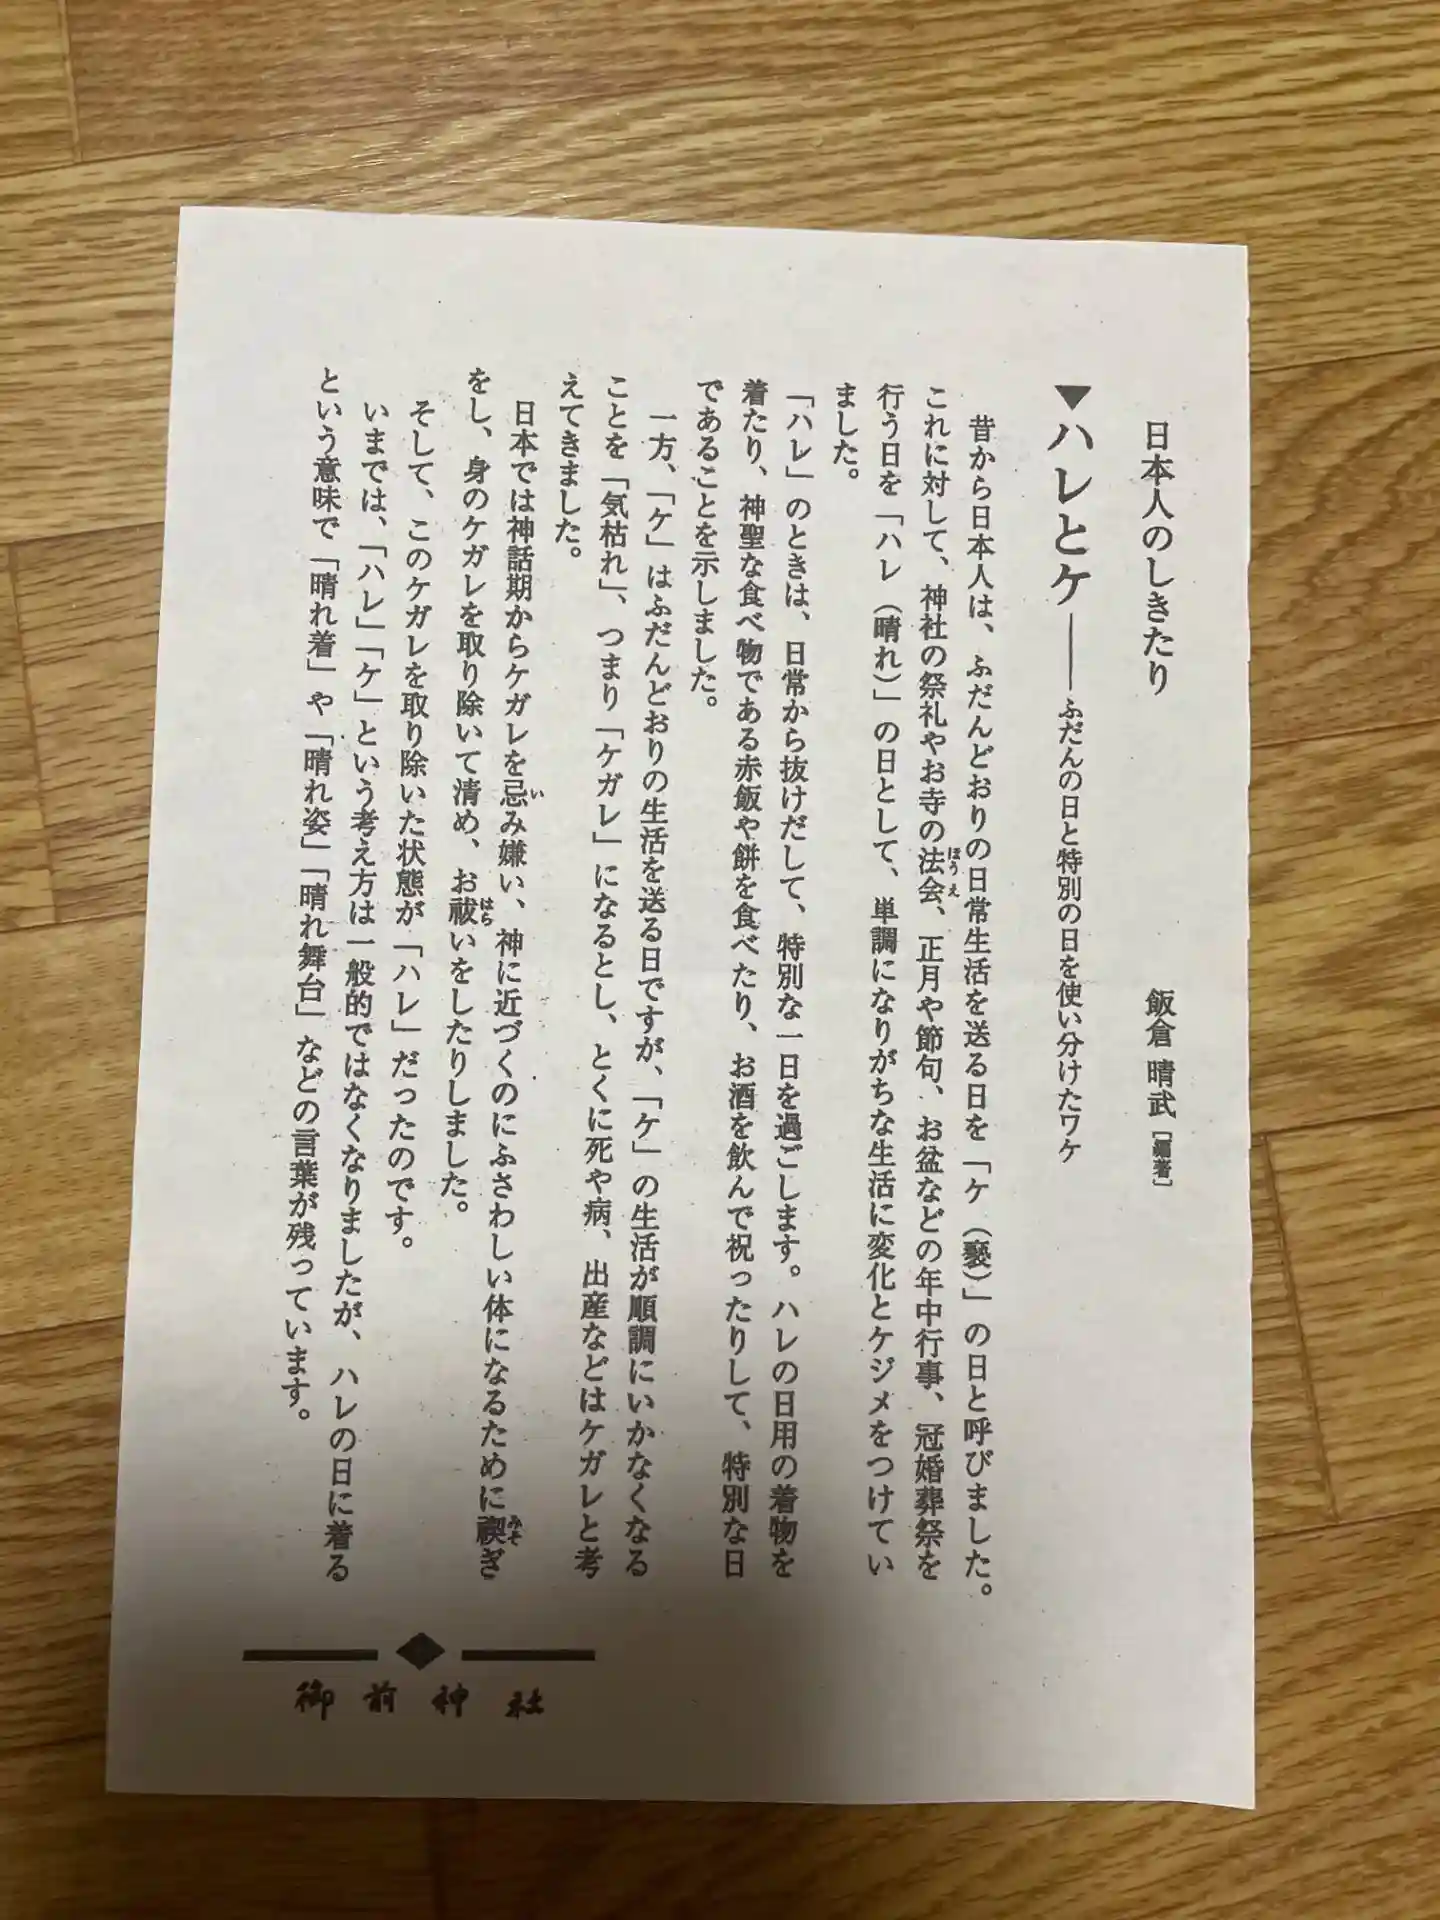 日本人のしきたり 飯倉 晴武［編著］
▼ハレとケ――ふだんの日と特別の日を使い分けたワケ
昔から日本人は、ふだんどおりの日常生活を送る日を「ケ（褻）」の日と呼びました。
これに対して、神社の祭礼やお寺の法会、正月や節句、お盆などの年中行事、冠婚葬祭を
行う日を「ハレ（晴れ）」の日として、単調になりがちな生活に変化とケジメをつけてい
ました。
「ハレ」のときは、日常から抜けだして、特別な一日を過ごします。ハレの日用の着物を
着たり、神聖な食べ物である赤飯や餅を食べたり、お酒を飲んで祝ったりして、特別な日
であることを示しました。
一方、「ケ」はふだんどおりの生活を送る日ですが、「ケ」の生活が順調にいかなくなる
ことを「気枯れ」、つまり「ケガレ」になるとし、とくに死や病、出産などはケガレと考
えてきました。
日本では神話期からケガレを忌み嫌い、神に近づくのにふさわしい体になるために禊ぎ
をし、身のケガレを取り除いて清め、お祓いをしたりしました。
そして、このケガレを取り除いた状態が「ハレ」だったのです。
いまでは、「ハレ」「ケ」という考え方は一般的ではなくなりましたが、ハレの日に着る
という意味で「晴れ着」や「晴れ姿」「晴れ舞台」などの言葉が残っています。
御前神社